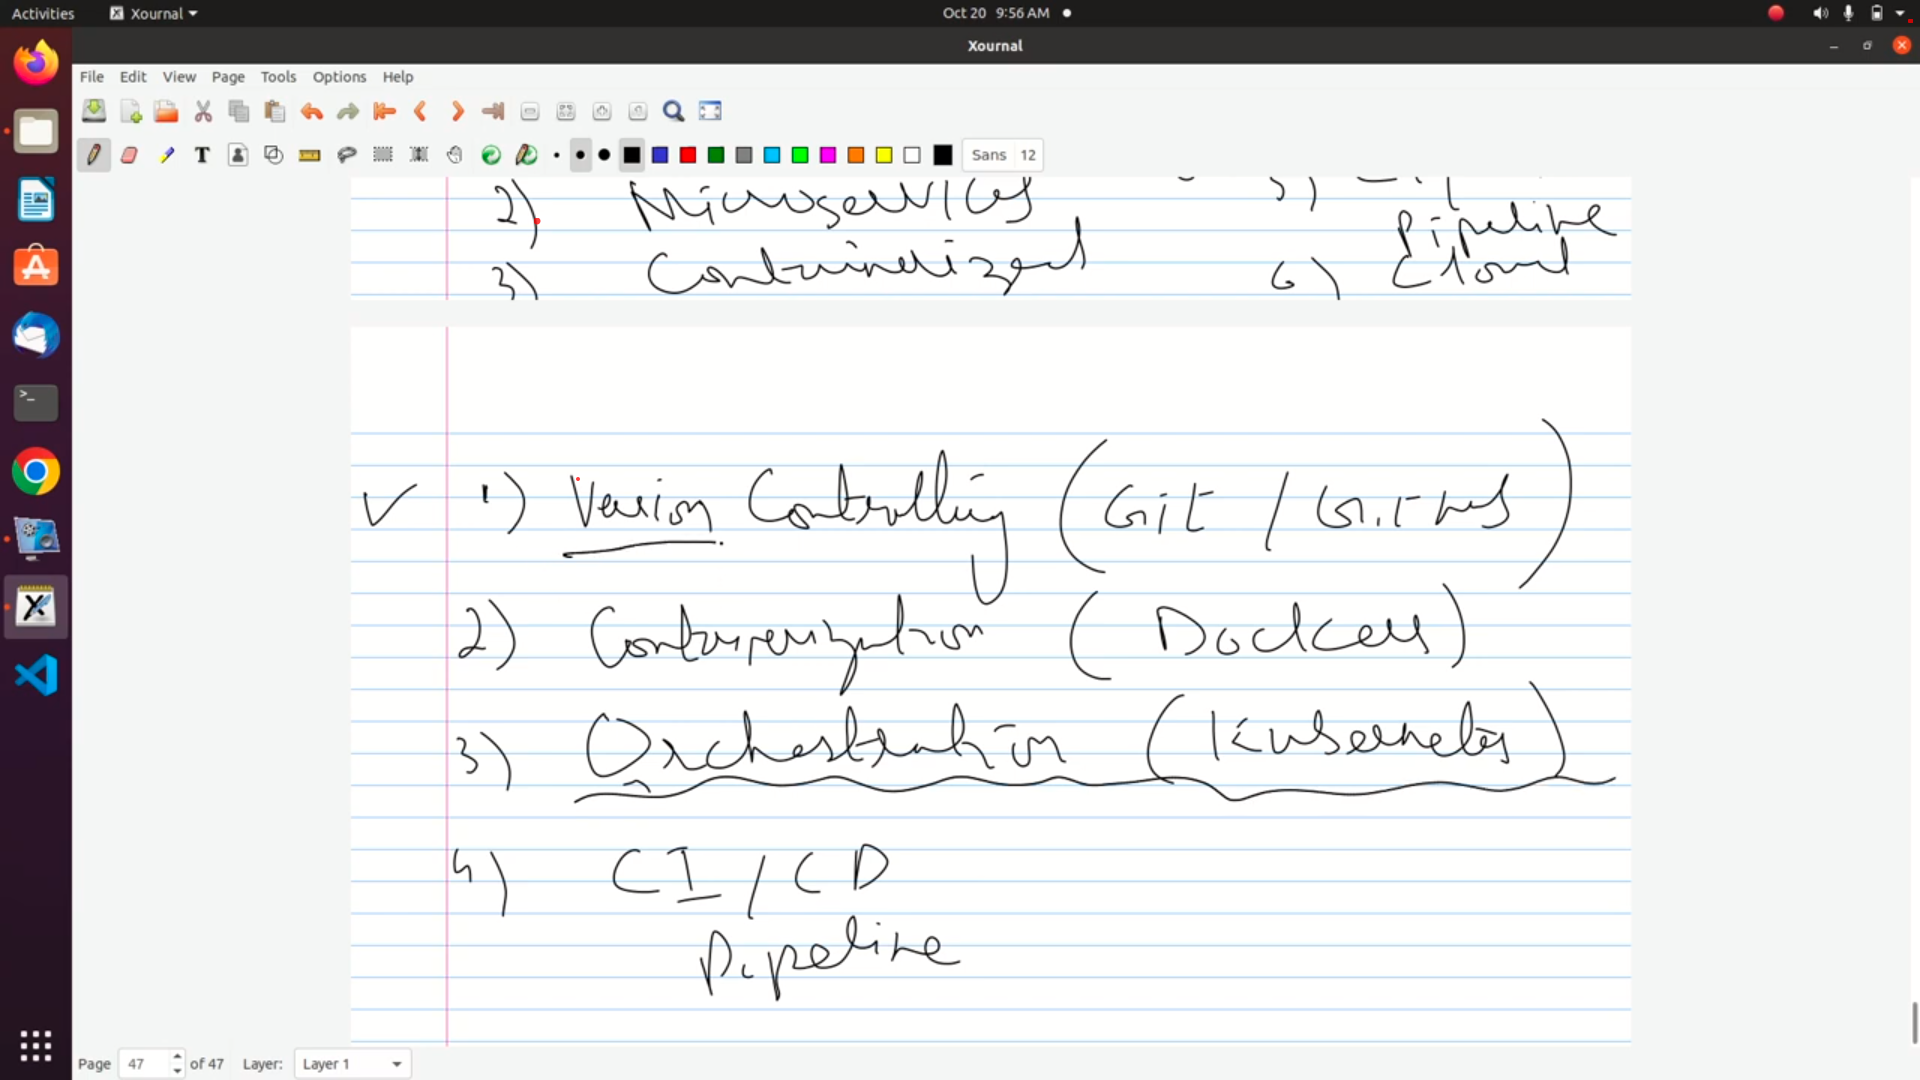 Activities Xournal Oct 20 9:56 AM
Xournal
File Edit View Page Tools Options Help
Sans 12
2) Microservices
Pipeline
3) Containerized 6) Cloud
1) Version Controlling (Git / GitHub)
2) Containerization (Docker)
3) Orchestration (Kubernetes)
4) CI / CD
Pipeline
Page 47 of 47 Layer: Layer 1